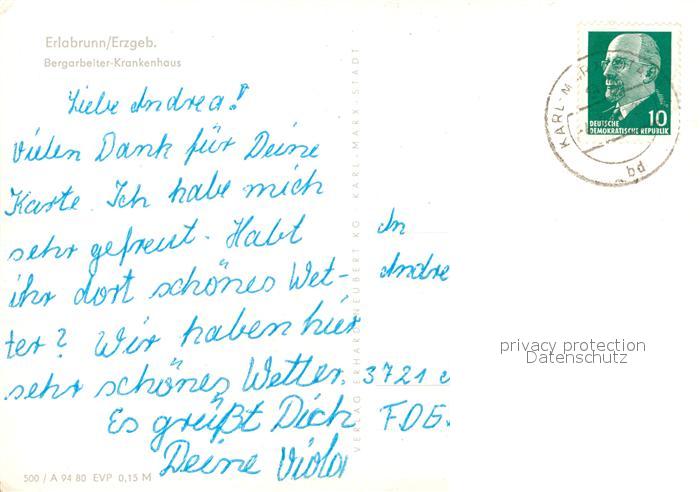 Erlabrunn/Erzgeb.
Bergarbeiter-Krankenhaus
Liebe Andrea!
Vielen Dank für Deine
Karte. Ich habe mich
sehr gefreut. Habt
ihr dort schönes Wet-
ter? Wir haben hier
sehr schönes Wetter.
Es grüßt Dich
Deine Viola
500 / A 94 80 EVP 0,15 M
VERLAG ERHARD NEUBERT KG KARL-MARX-STADT
KARL-M
bd
10
DEUTSCHE
DEMOKRATISCHE REPUBLIK
An
Andre
3721
F.D.G.
privacy protection
Datenschutz